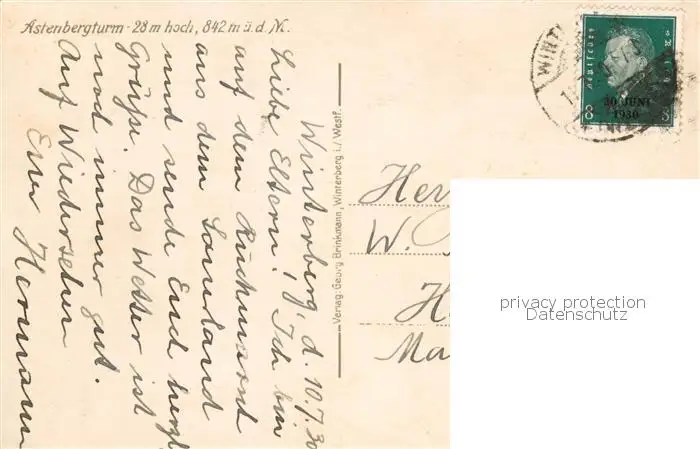 Astenbergturm - 28 m hoch, 842 m ü. d. M.
Winterberg, d. 10.7.30
Liebe Eltern! Ich bin
auf dem Rückmarsch
aus dem Sauerland
und sende Euch herzl.
Grüße. Das Wetter ist
noch immer gut.
Auf Wiedersehen
Euer Hermann
Verlag: Georg Brinkmann, Winterberg i./Westf.
Deutsches Reich
30. JUNI
1930
8 8
WINT
Her
W.
H
Ma
privacy protection
Datenschutz